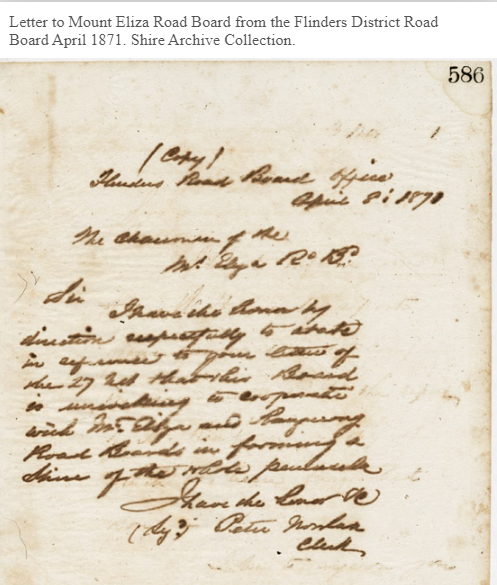 Letter to Mount Eliza Road Board from the Flinders District Road
Board April 1871. Shire Archive Collection.
586
(Copy)
Flinders Road Board Office
April 8: 1871
The Chairman of the
Mt. Eliza Rd. Bd.
Sir
I have the honor by
direction respectfully to state
in reference to your letter of
the 27 Ult that this Board
is unwilling to cooperate
with Mt. Eliza and Kangerong
Road Boards in forming a
Shire of the whole peninsula
I have the honor &c
(Sgd) Peter Nowlan
Clerk